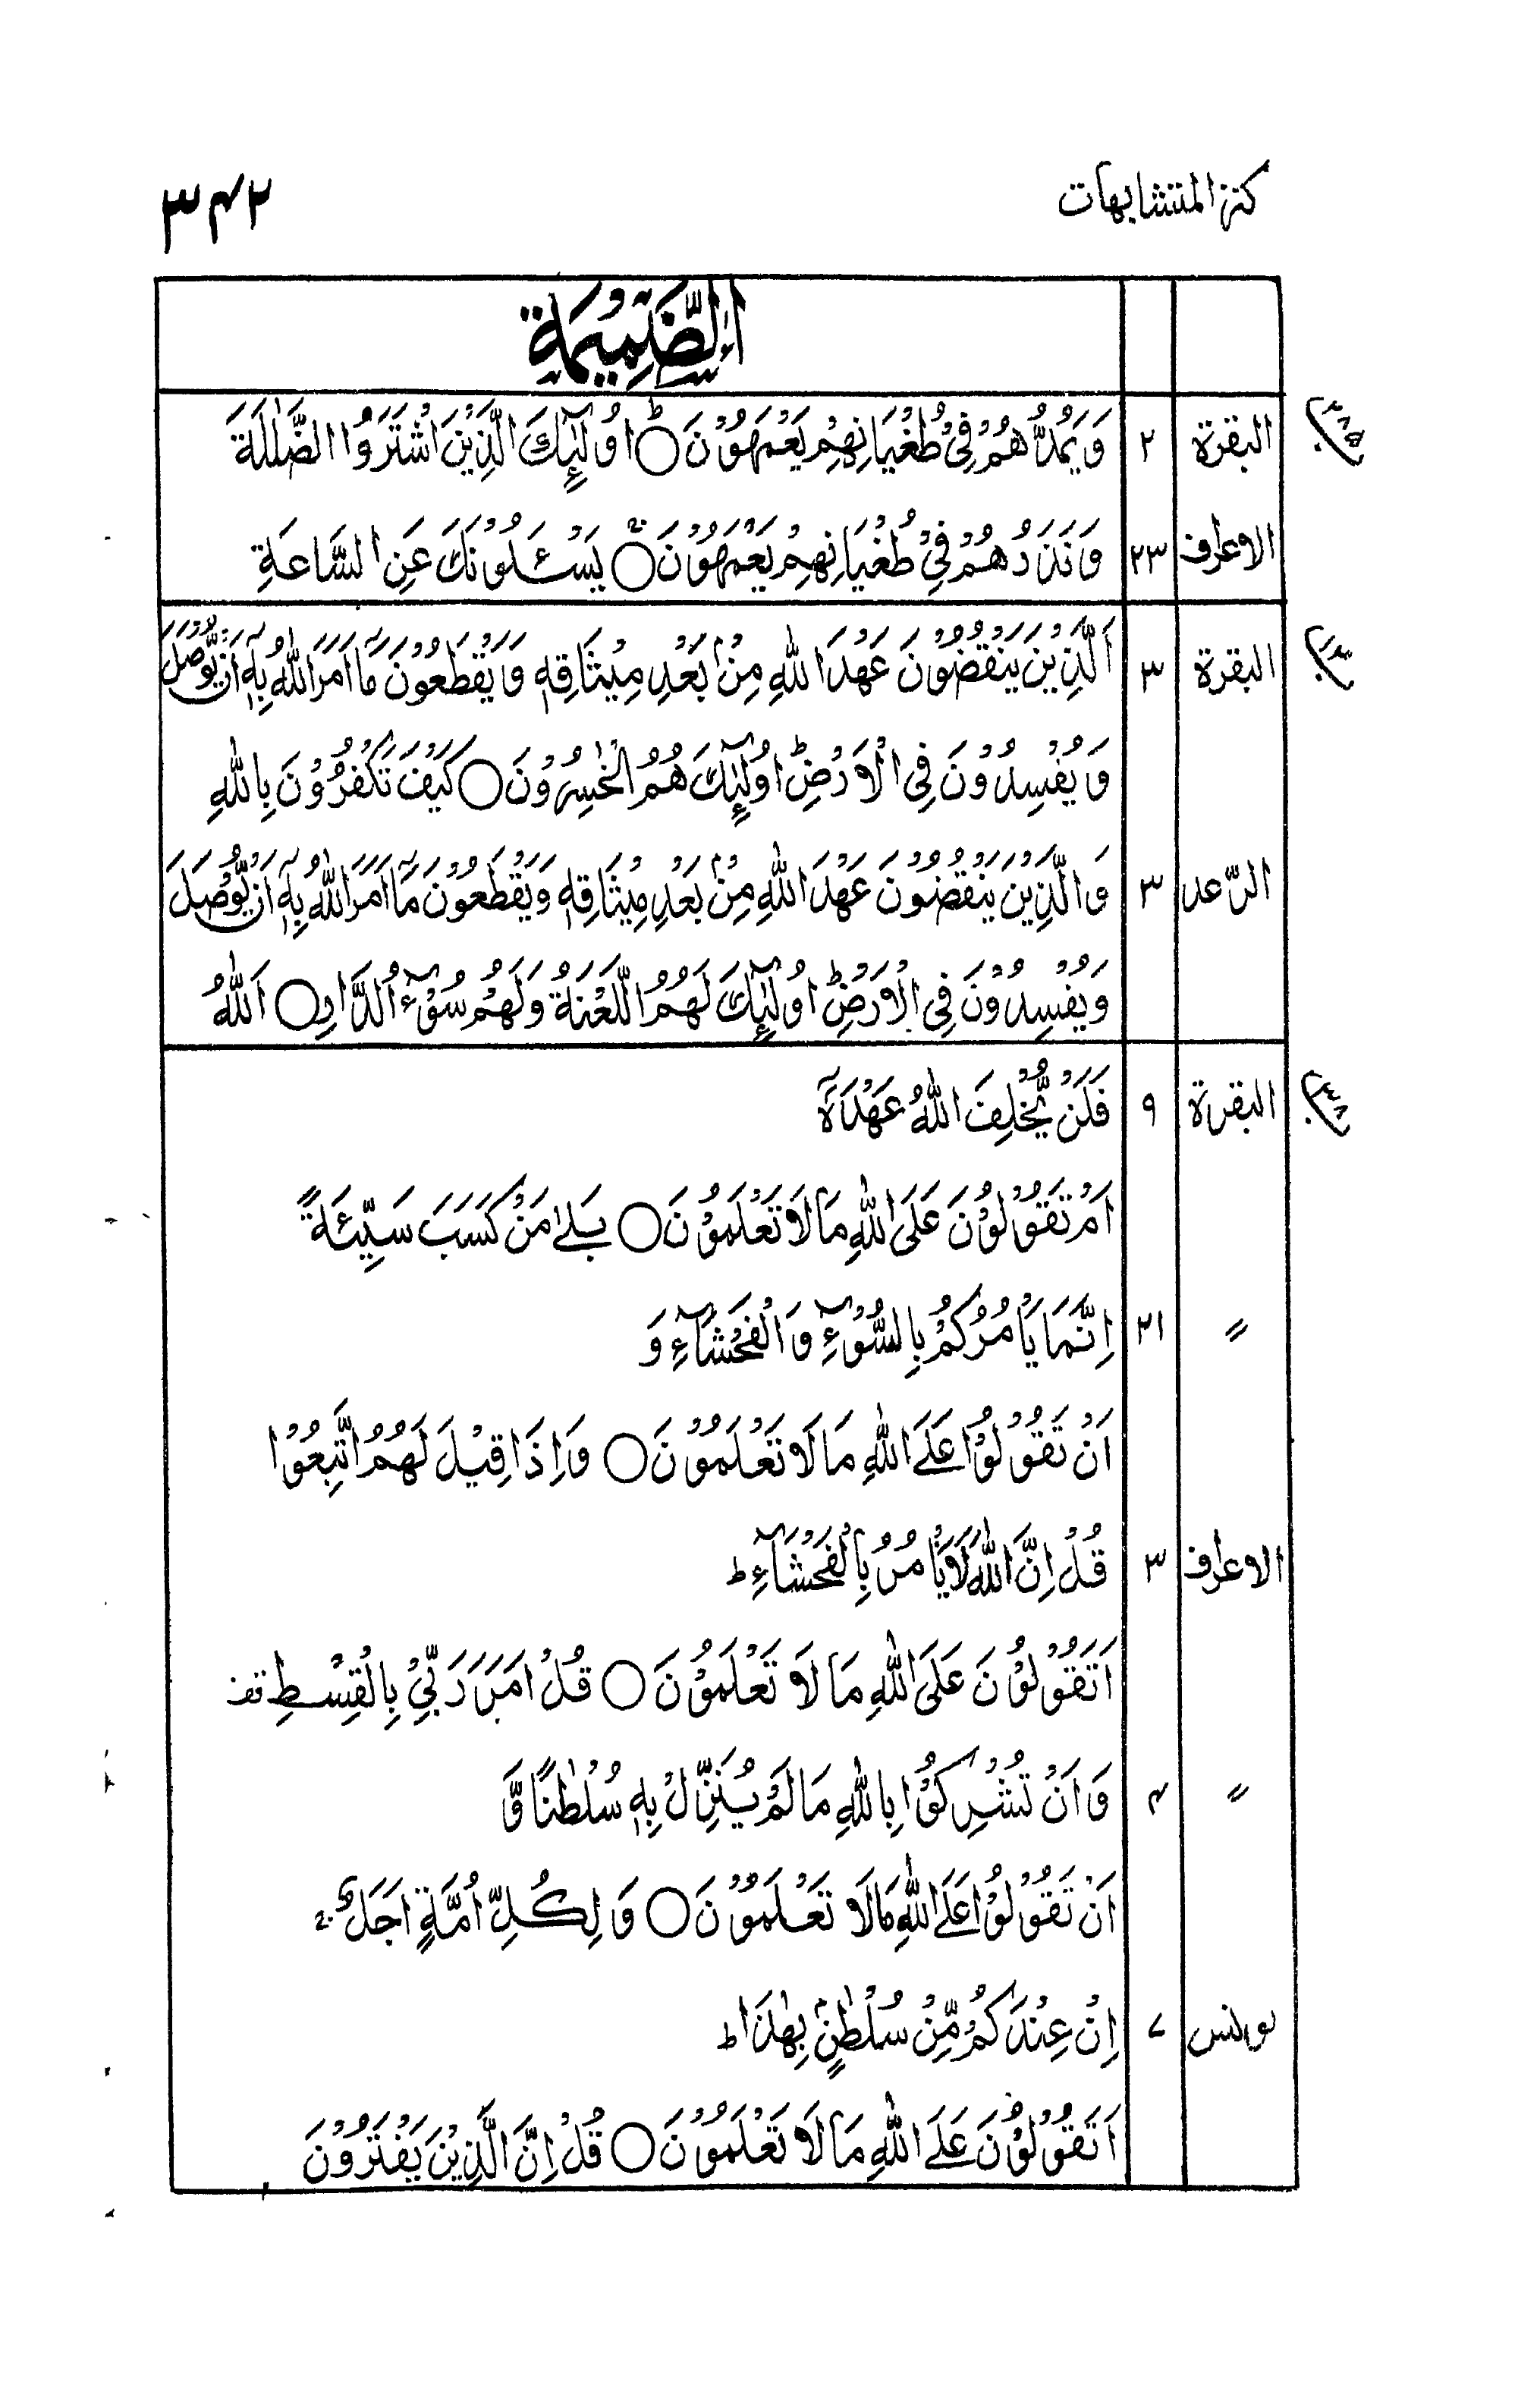 كنز المتشابهات ٣٤٢
اَلضَّمِيْمَةُ
البقرة ٢ وَيَمُدُّهُمْ فِيْ طُغْيَانِهِمْ يَعْمَهُوْنَ ○ اُولٰٓئِكَ الَّذِيْنَ اشْتَرَوُا الضَّلٰلَةَ
الاعراف ٢٣ وَنَذَرُهُمْ فِيْ طُغْيَانِهِمْ يَعْمَهُوْنَ ○ يَسْـَٔلُوْنَكَ عَنِ السَّاعَةِ
البقرة ٣ اَلَّذِيْنَ يَنْقُضُوْنَ عَهْدَ اللّٰهِ مِنْۢ بَعْدِ مِيْثَاقِهٖ وَيَقْطَعُوْنَ مَآ اَمَرَ اللّٰهُ بِهٖٓ اَنْ يُّوْصَلَ
وَيُفْسِدُوْنَ فِي الْاَرْضِ ؕ اُولٰٓئِكَ هُمُ الْخٰسِرُوْنَ ○ كَيْفَ تَكْفُرُوْنَ بِاللّٰهِ
الرّعد ٣ وَالَّذِيْنَ يَنْقُضُوْنَ عَهْدَ اللّٰهِ مِنْۢ بَعْدِ مِيْثَاقِهٖ وَيَقْطَعُوْنَ مَآ اَمَرَ اللّٰهُ بِهٖٓ اَنْ يُّوْصَلَ
وَيُفْسِدُوْنَ فِي الْاَرْضِ ؕ اُولٰٓئِكَ لَهُمُ اللَّعْنَةُ وَلَهُمْ سُوْٓءُ الدَّارِ ○ اَللّٰهُ
البقرة ٩ فَلَنْ يُّخْلِفَ اللّٰهُ عَهْدَهٗٓ
اَمْ تَقُوْلُوْنَ عَلَى اللّٰهِ مَا لَا تَعْلَمُوْنَ ○ بَلٰى مَنْ كَسَبَ سَيِّئَةً
〃 ٢١ اِنَّمَا يَاْمُرُكُمْ بِالسُّوْٓءِ وَالْفَحْشَآءِ وَ
اَنْ تَقُوْلُوْا عَلَى اللّٰهِ مَا لَا تَعْلَمُوْنَ ○ وَاِذَا قِيْلَ لَهُمُ اتَّبِعُوْا
الاعراف ٣ قُلْ اِنَّ اللّٰهَ لَا يَاْمُرُ بِالْفَحْشَآءِ ؕ
اَتَقُوْلُوْنَ عَلَى اللّٰهِ مَا لَا تَعْلَمُوْنَ ○ قُلْ اَمَرَ رَبِّيْ بِالْقِسْطِ قف
〃 ٤ وَاَنْ تُشْرِكُوْا بِاللّٰهِ مَا لَمْ يُنَزِّلْ بِهٖ سُلْطٰنًا وَّ
اَنْ تَقُوْلُوْا عَلَى اللّٰهِ مَا لَا تَعْلَمُوْنَ ○ وَلِكُلِّ اُمَّةٍ اَجَلٌ ۚ
يونس ٧ اِنْ عِنْدَكُمْ مِّنْ سُلْطٰنٍۭ بِهٰذَا ؕ
اَتَقُوْلُوْنَ عَلَى اللّٰهِ مَا لَا تَعْلَمُوْنَ ○ قُلْ اِنَّ الَّذِيْنَ يَفْتَرُوْنَ